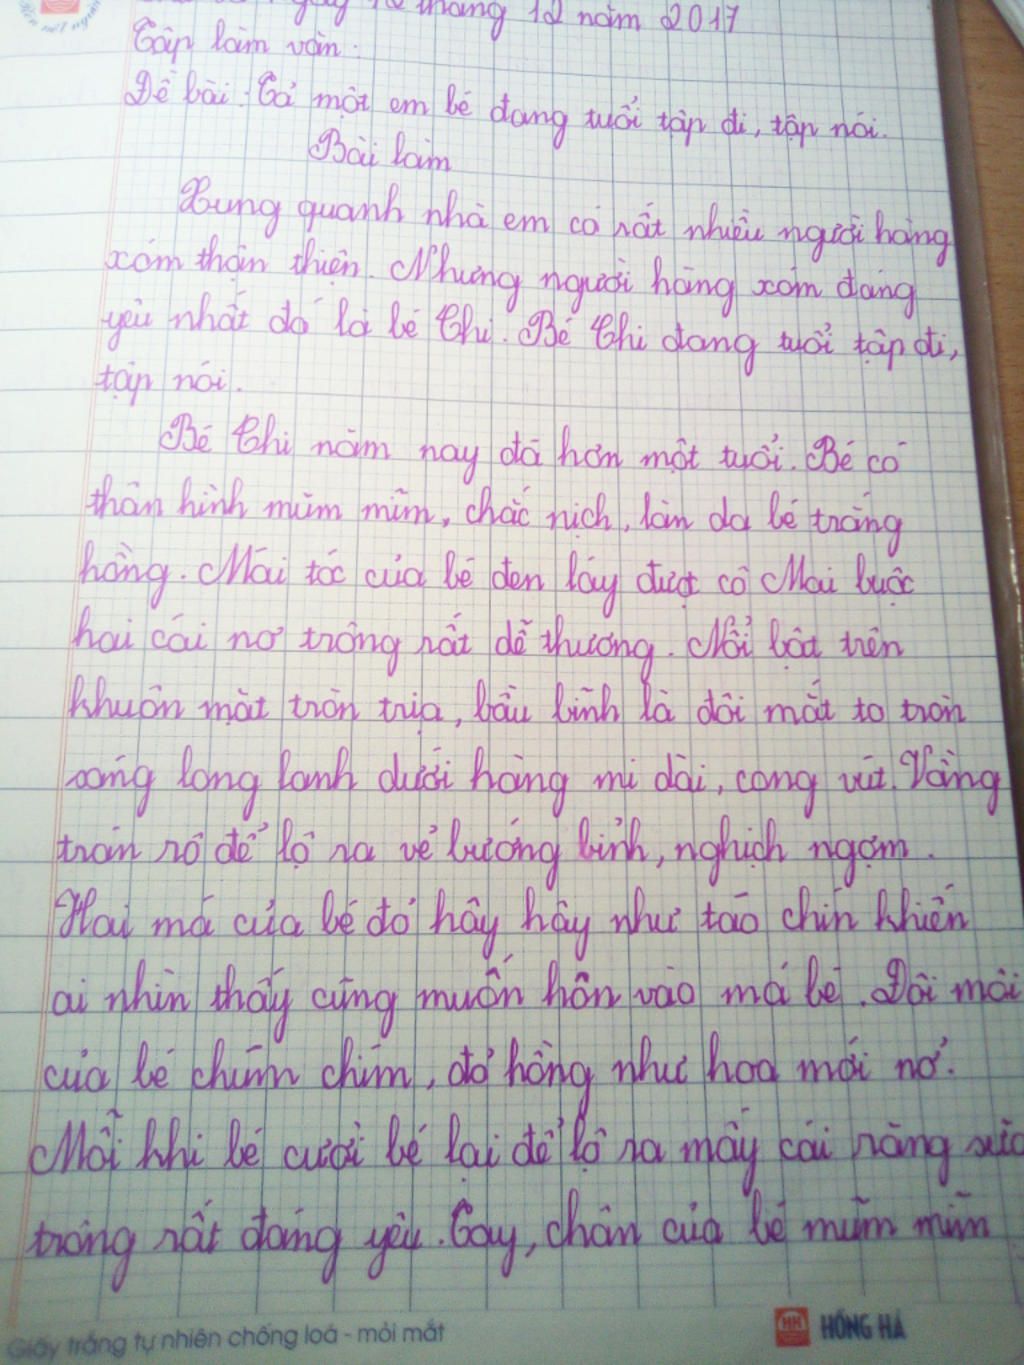 ngày 12 tháng 12 năm 2017
Tập làm văn:
Đề bài: Tả một em bé đang tuổi tập đi, tập nói.
Bài làm
Xung quanh nhà em có rất nhiều người hàng
xóm thận thiện. Nhưng người hàng xóm đáng
yêu nhất đó là bé Chi. Bé Chi đang tuổi tập đi,
tập nói.
Bé Chi năm nay đã hơn một tuổi. Bé có
thân hình mũm mĩm, chắc nịch, làn da bé trắng
hồng. Mái tóc của bé đen láy được cô Mai buộc
hai cái nơ trông rất dễ thương. Nổi bật trên
khuôn mặt tròn trịa, bầu bĩnh là đôi mắt to tròn
sáng long lanh dưới hàng mi dài, cong vút. Vầng
trán rô để lộ ra vẻ bướng bỉnh, nghịch ngợm.
Hai má của bé đỏ hây hây như táo chín khiến
ai nhìn thấy cũng muốn hôn vào má bé. Đôi môi
của bé chúm chím, đỏ hồng như hoa mới nở.
Mỗi khi bé cười bé lại để lộ ra mấy cái răng sữa
trông rất đáng yêu. Tay, chân của bé mũm mĩm
Giấy trắng tự nhiên chống loá - mỏi mắt
HH HỒNG HÀ